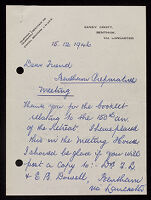 SANDY CROFT,
BENTHAM,
VIA LANCASTER
15.12.1946
Dear Friend
Bentham Preparative
Meeting
Thank you for the booklet
relating to the 150th an.
of the Retreat. I have placed
this in the Meeting House
I should be glad if you will
post a copy to:- Dr J. D.
& E B. Dowell, Bentham
via Lancaster